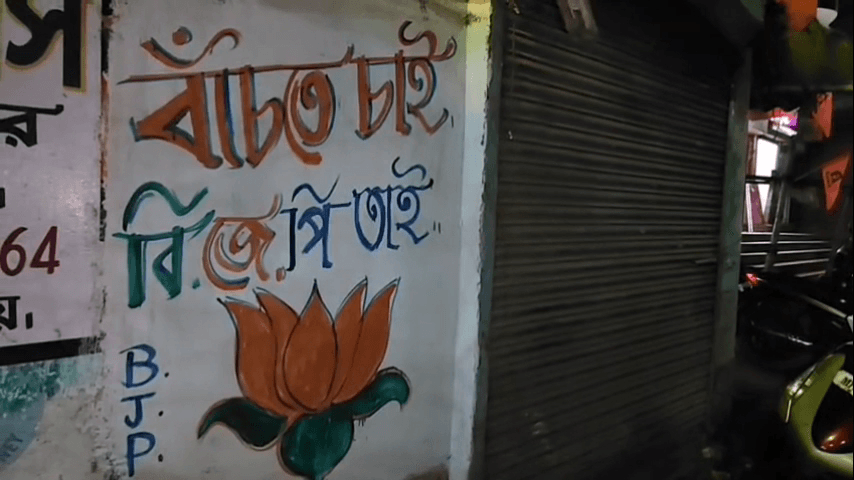 বাঁচতে চাই,
বি.জে.পি তাই..
B.
J.
P.
স
র
64
য়।